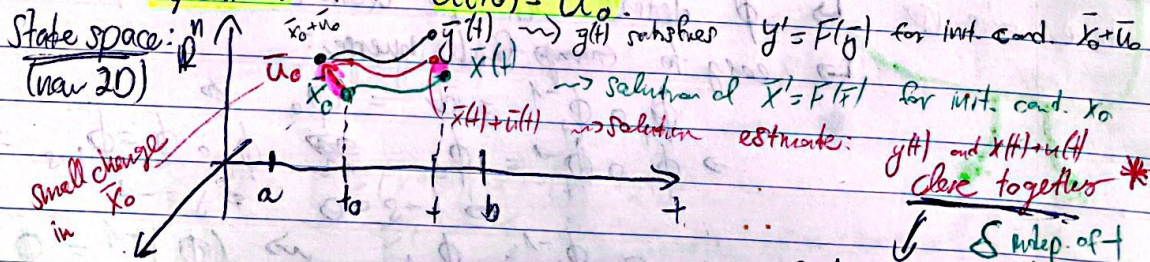 u(t0) = u0.
State space: ℝⁿ
(now 2D)
x̄0+ū0
ȳ(t) ~> y(t) satisfies y' = F(ȳ) for init. cond. x̄0+ū0
ū0
x̄(t)
x0
~> solution of x̄' = F(x̄) for init. cond. x0
x̄(t)+ū(t) ~> solution estimate: y(t) and x(t)+u(t)
close together *
small change
in x̄0
a t0 t b t
↓ δ indep. of t